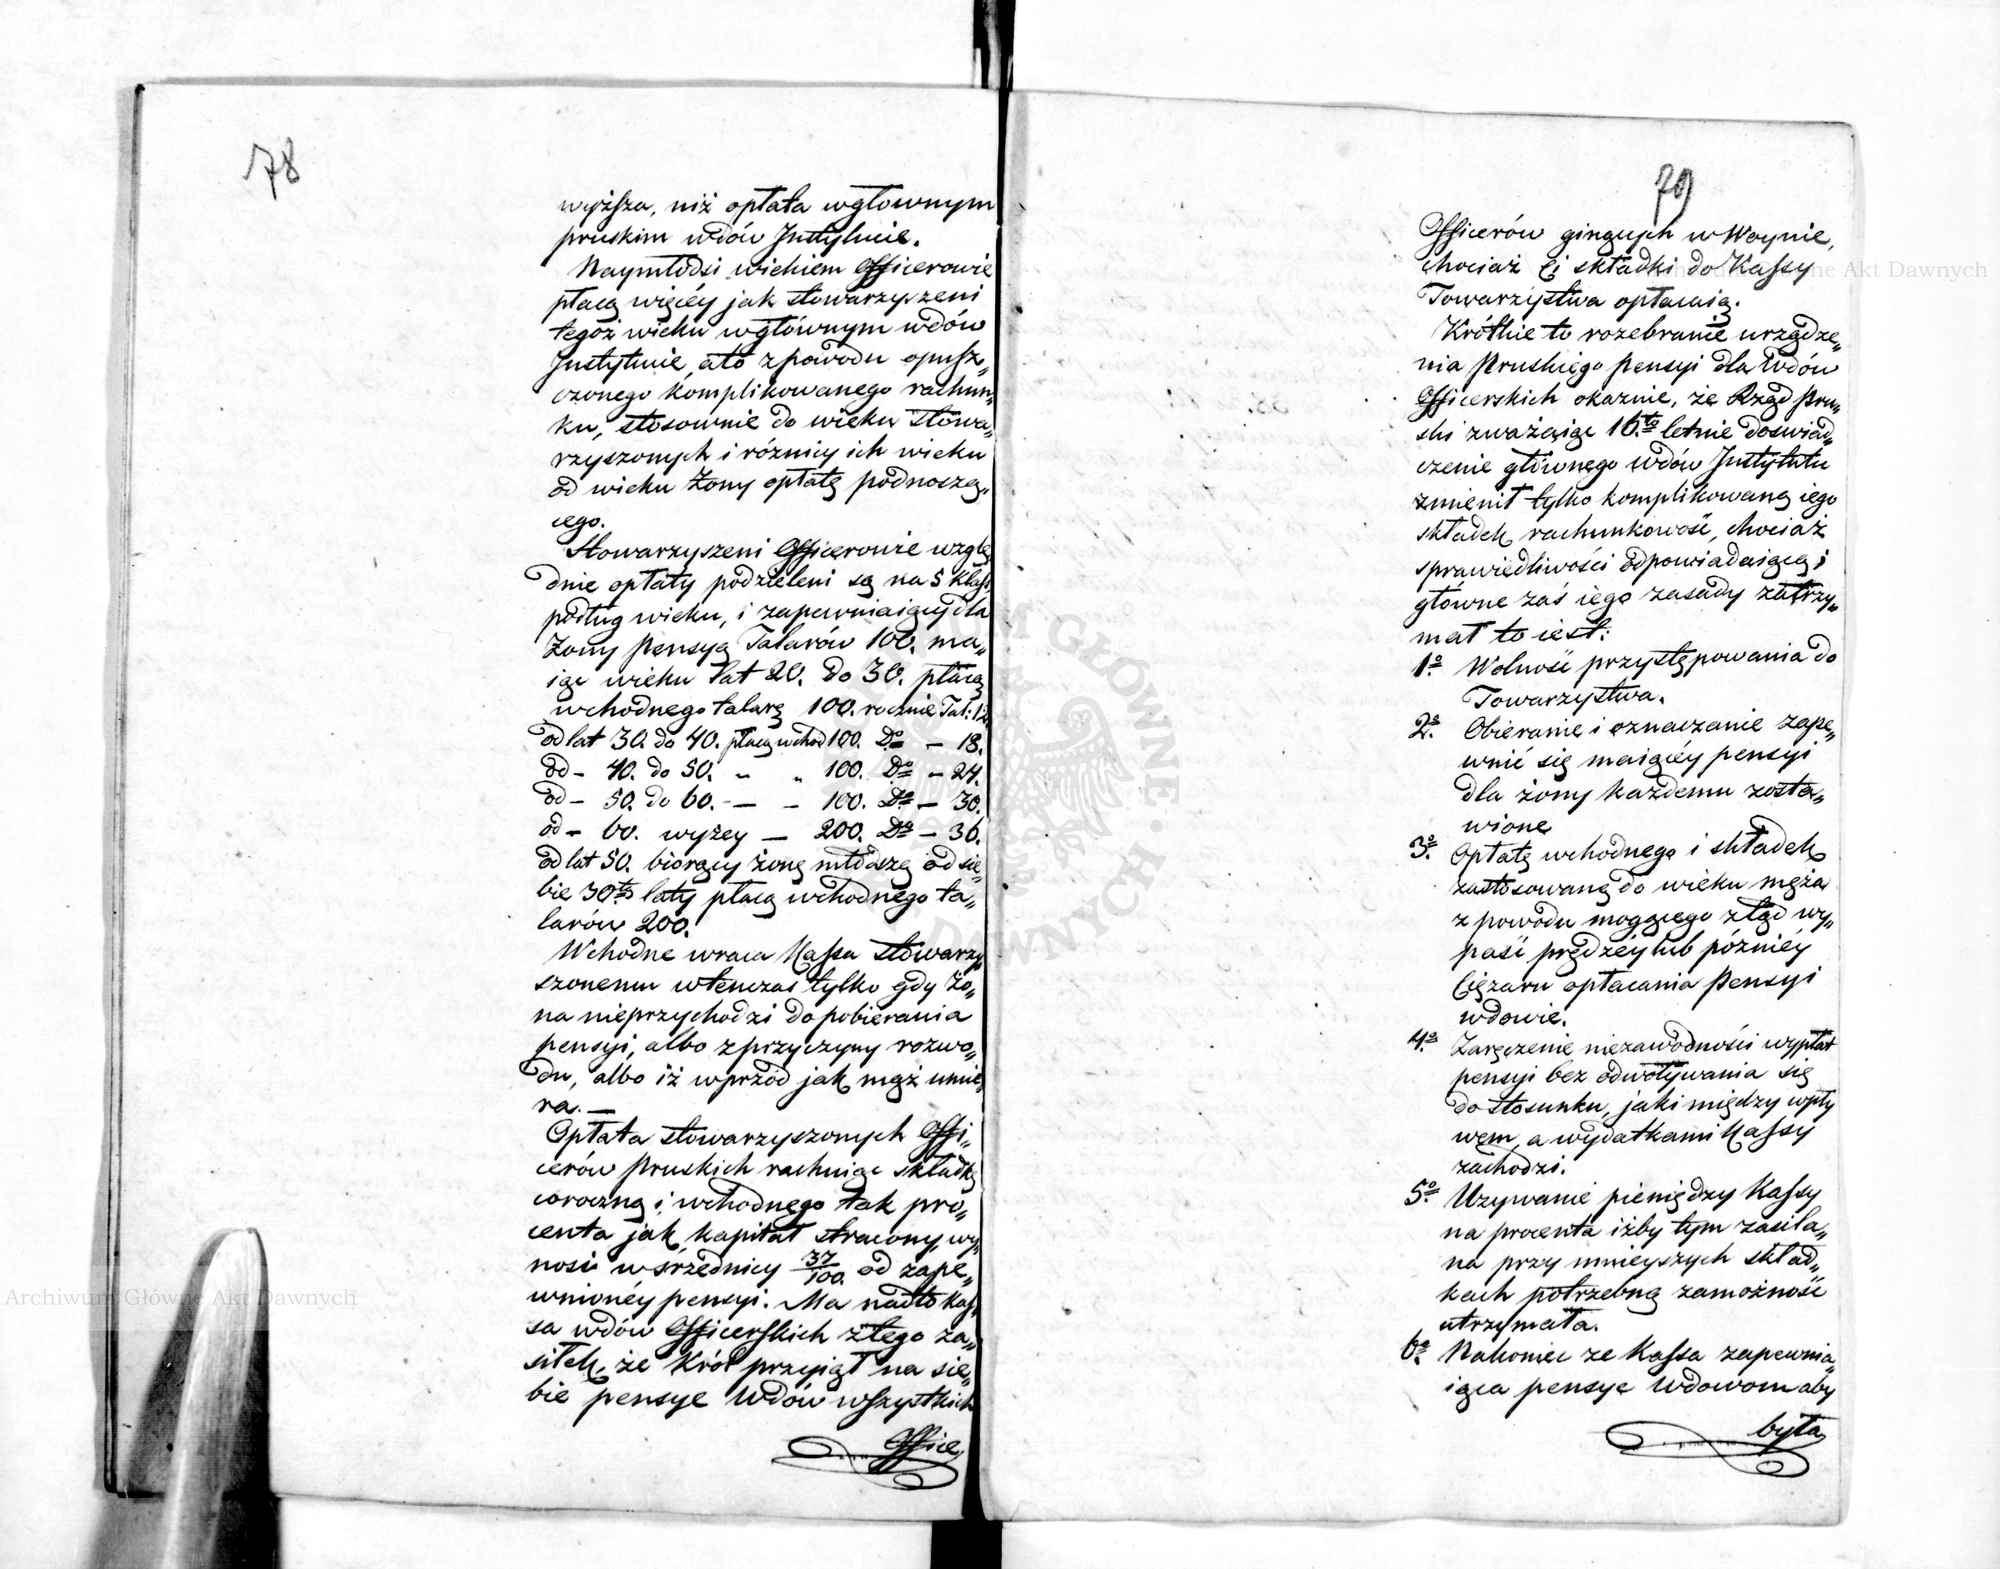 78
wyższa, niż opłata w głownym
pruskim wdów Instytucie.
Naymłodsi wiekiem Officerowie
płacą więcéy jak stowarzyszeni
tegoż wieku w głównym wdów
Instytucie, a to z powodu opusz„
czonego komplikowanego rachun„
ku, stosownie do wieku stowa„
rzyszonych i różnicy ich wieku
od wieku Żony opłatę podnoszą„
cego.
Stowarzyszeni Officerowie wzglę
dnie opłaty podzieleni są na 5 Klass
podług wieku, i zapewniaiący dla
Żony pensyą Talarów 100. ma„
iąc wieku lat 20. do 30. płacą
wchodnego talarę 100. rocznie Tal: 12
od lat 30. do 40. płacą wchod 100. Do – 18.
od – 40. do 50. „ „ 100. Do – 24.
od – 50. do 60. – – – 100. Do – 30.
od – 60. wyżey – 200. Do – 36.
od lat 50. biorący żonę młodszą od sie„
bie 30tą laty płacą wchodnego ta„
larów 200.
Wchodne wraca Kassa stowarzy
szonemu wtenczas tylko gdy żo„
na nieprzychodzi do pobierania
pensyi, albo z przyczyny rozwo„
du, albo iż wprzód jak mąż umie
ra. —
Opłata stowarzyszonych Offi„
cerów Pruskich rachuiąc składkę
coroczną i wchodnego tak pro„
centa jak kapitał stracony, wy„
nosi w srzednicy 37/100 od zape„
wnionéy pensyi. Ma nadto Kas„
sa wdów Officerskich z tego za„
siłek, że Król przyiął na sie„
bie pensye Wdów wszystkich
Office
79
Officerów ginących w Woynie,
chociaż Ci składki do Kassy
Towarzystwa opłacaią.
Krótkie to rozebranie urządze„
nia Pruskiego pensyi dla Wdów
Officerskich okazuie, że Rząd Pru„
ski zważaiąc 16.to letnie doswiad„
czenie głównego wdów Instytutu
zmienił tylko komplikowaną iego
składek rachunkowość, chociaż
sprawiedliwości odpowiadaiącą i
główne zaś iego zasady zatrzy„
mał to iest:
1o Wolność przystępowania do
Towarzystwa.
2o Obieranie i oznaczanie zape„
wnić się maiącéy pensyi
dla żony każdemu zosta„
wione
3o Opłatę wchodnego i składek
zastosowaną do wieku męża
z powodu mogącego ztąd wy„
paść prędzéy lub późniéy
Ciężaru opłacania Pensyi
wdowie.
4o Zaręczenie niezawodności wypłat
pensyi bez odwoływania się
do stosunku, jaki między wpły
wem, a wydatkami Kassy
zachodzi.
5o Używanie pieniędzy Kassy
na procenta iżby tym zasila„
na przy mnieyszych skład„
kach potrzebną zamożność
utrzymała.
6o Nakoniec ze Kassa zapewnia„
iąca pensye Wdowom aby
była
Archiwum Główne Akt Dawnych
Archiwum Główne Akt Dawnych